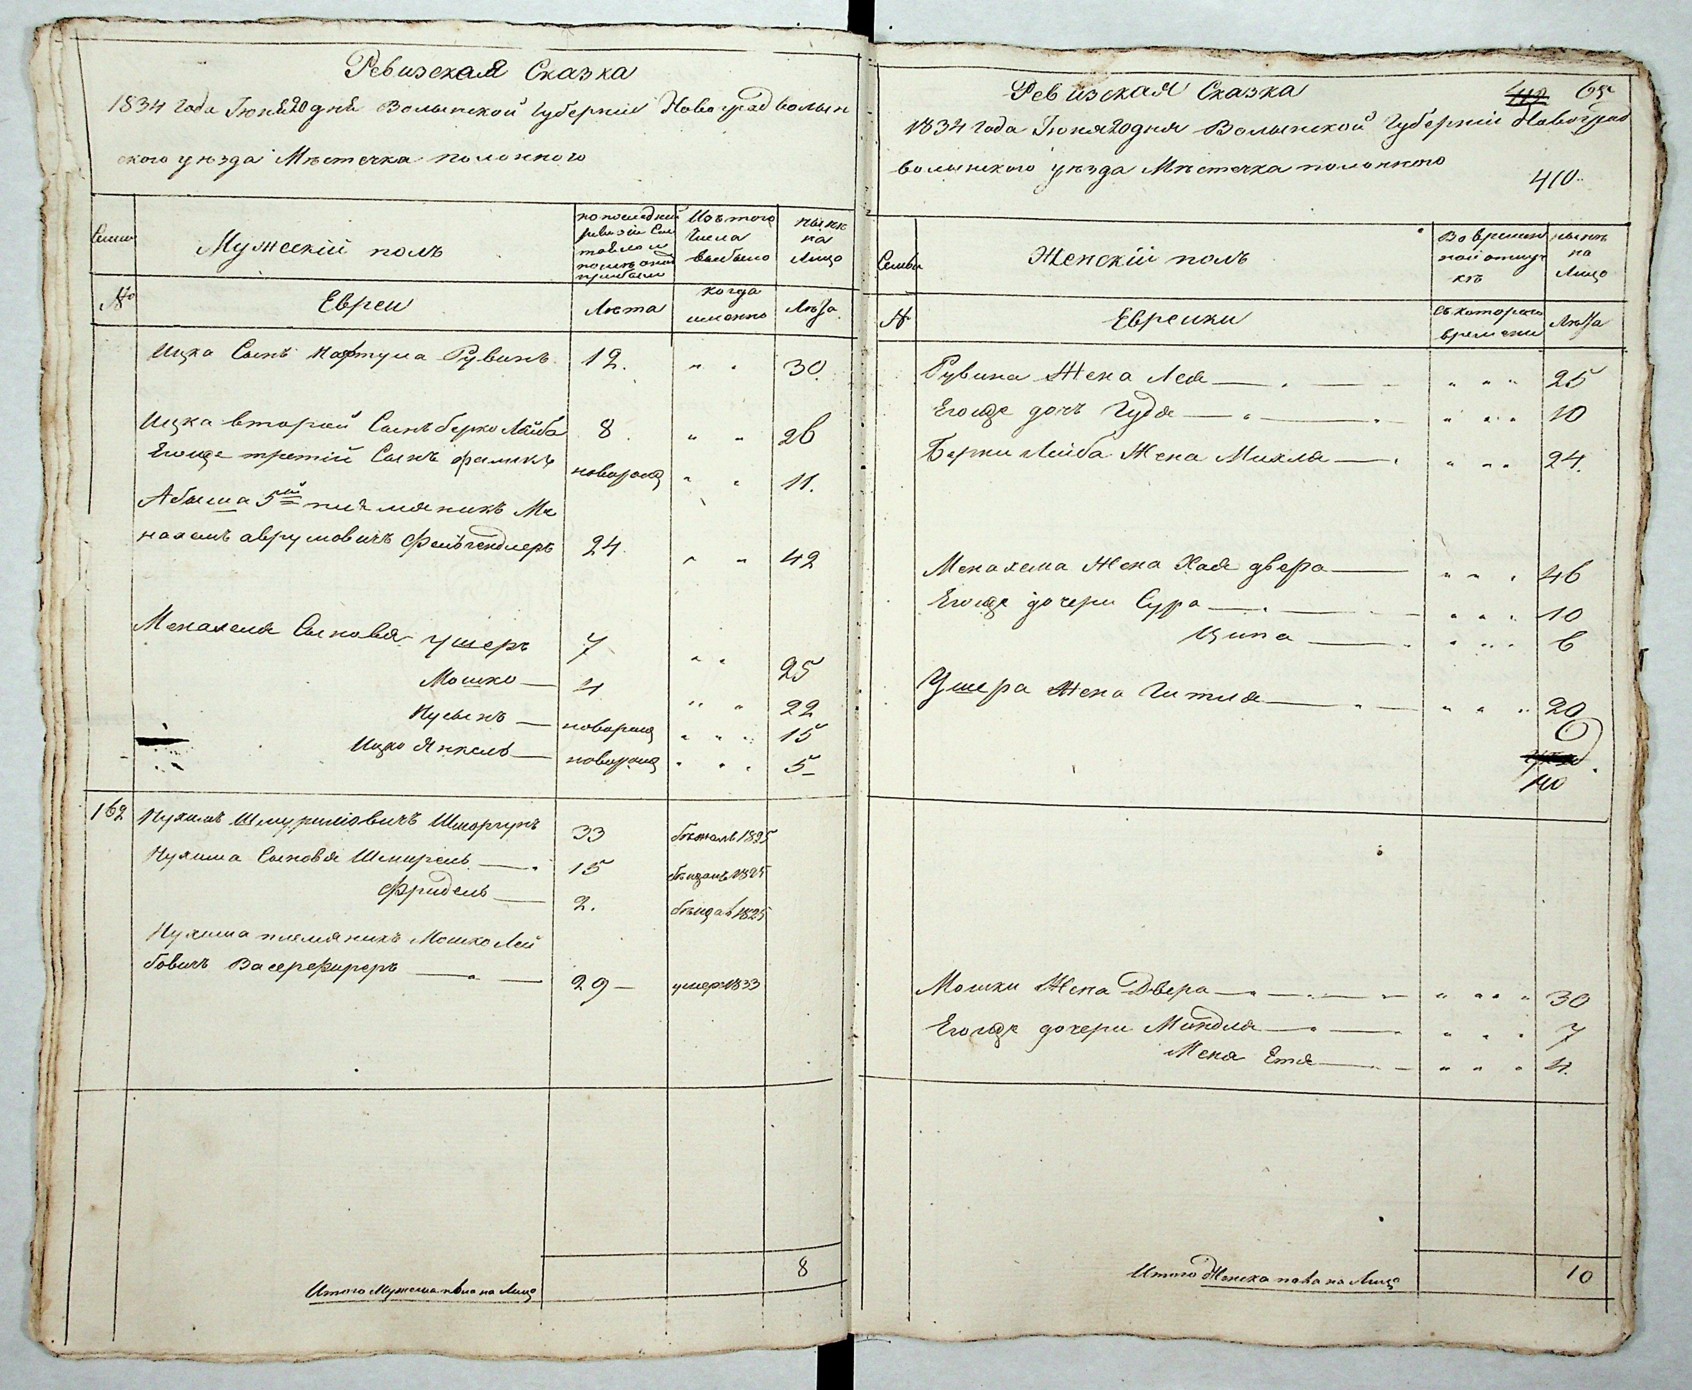 Ревизская Сказка
1834 года Іюня 20 дня Волынской Губерніи Новоградволын
ского уѣзда Мѣстечка полонного
Семьи
Мужескій полъ
по последней
ревизіи Сос
тояло и
послѣ оной
прибыло
Изъ того
Числа
выбыло
нынѣ
на
Лицо
№
Евреи
Лѣта
когда
именно
Лѣта
Ицка Сынъ Нафтула Рувинъ 12. " " 30.
Ицка второй Сынъ берко Лейба 8 " " 26
Егоже третій Сынъ новорож " " 11.
Абыша 5й племяникъ Ме
нахемъ аврумовичъ 24 " " 42
Менахема Сыновья ушеръ 7 " " 25
Мошко 4 " " 22
Нусынъ новорож " " 15
Ицко Янкель новорож " " 5
162 Нухимъ Шмурилiовичъ 33 бѣжалъ 1825
Нухима Сыновья Шмирель 15 бѣжалъ 1825
Фридель 2. бѣжалъ 1825
Нухима племяникъ Мошко Лей
бовичъ Васерфиреръ 29 умеръ 1833
8
Итого Мужеска пола на Лицо
Ревизская Сказка
65
1834 года Іюня 20 дня Волынской Губерніи Новоград
волынского уѣзда Мѣстечка полонного
410
Семьи
Женскій полъ
Во времен
ной отлуч
кѣ
нынѣ
на
Лицо
№
Еврейки
Съ которого
времени
Лѣта
Рувина Жена Лея " " " 25
Егоже дочь Гудя " " " 10
Берки Лейба Жена Михля " " " 24.
Менахема Жена Хая двера " " " 46
Егоже дочери Сура " " " 10
Ципа " " " 6
Ушера Жена Гитля " " " 20
Мошки Жена Двера " " " 30
Егоже дочери Миндля " " " 7
Меня Етя " " " 4.
Итого Женска пола на Лицо
10